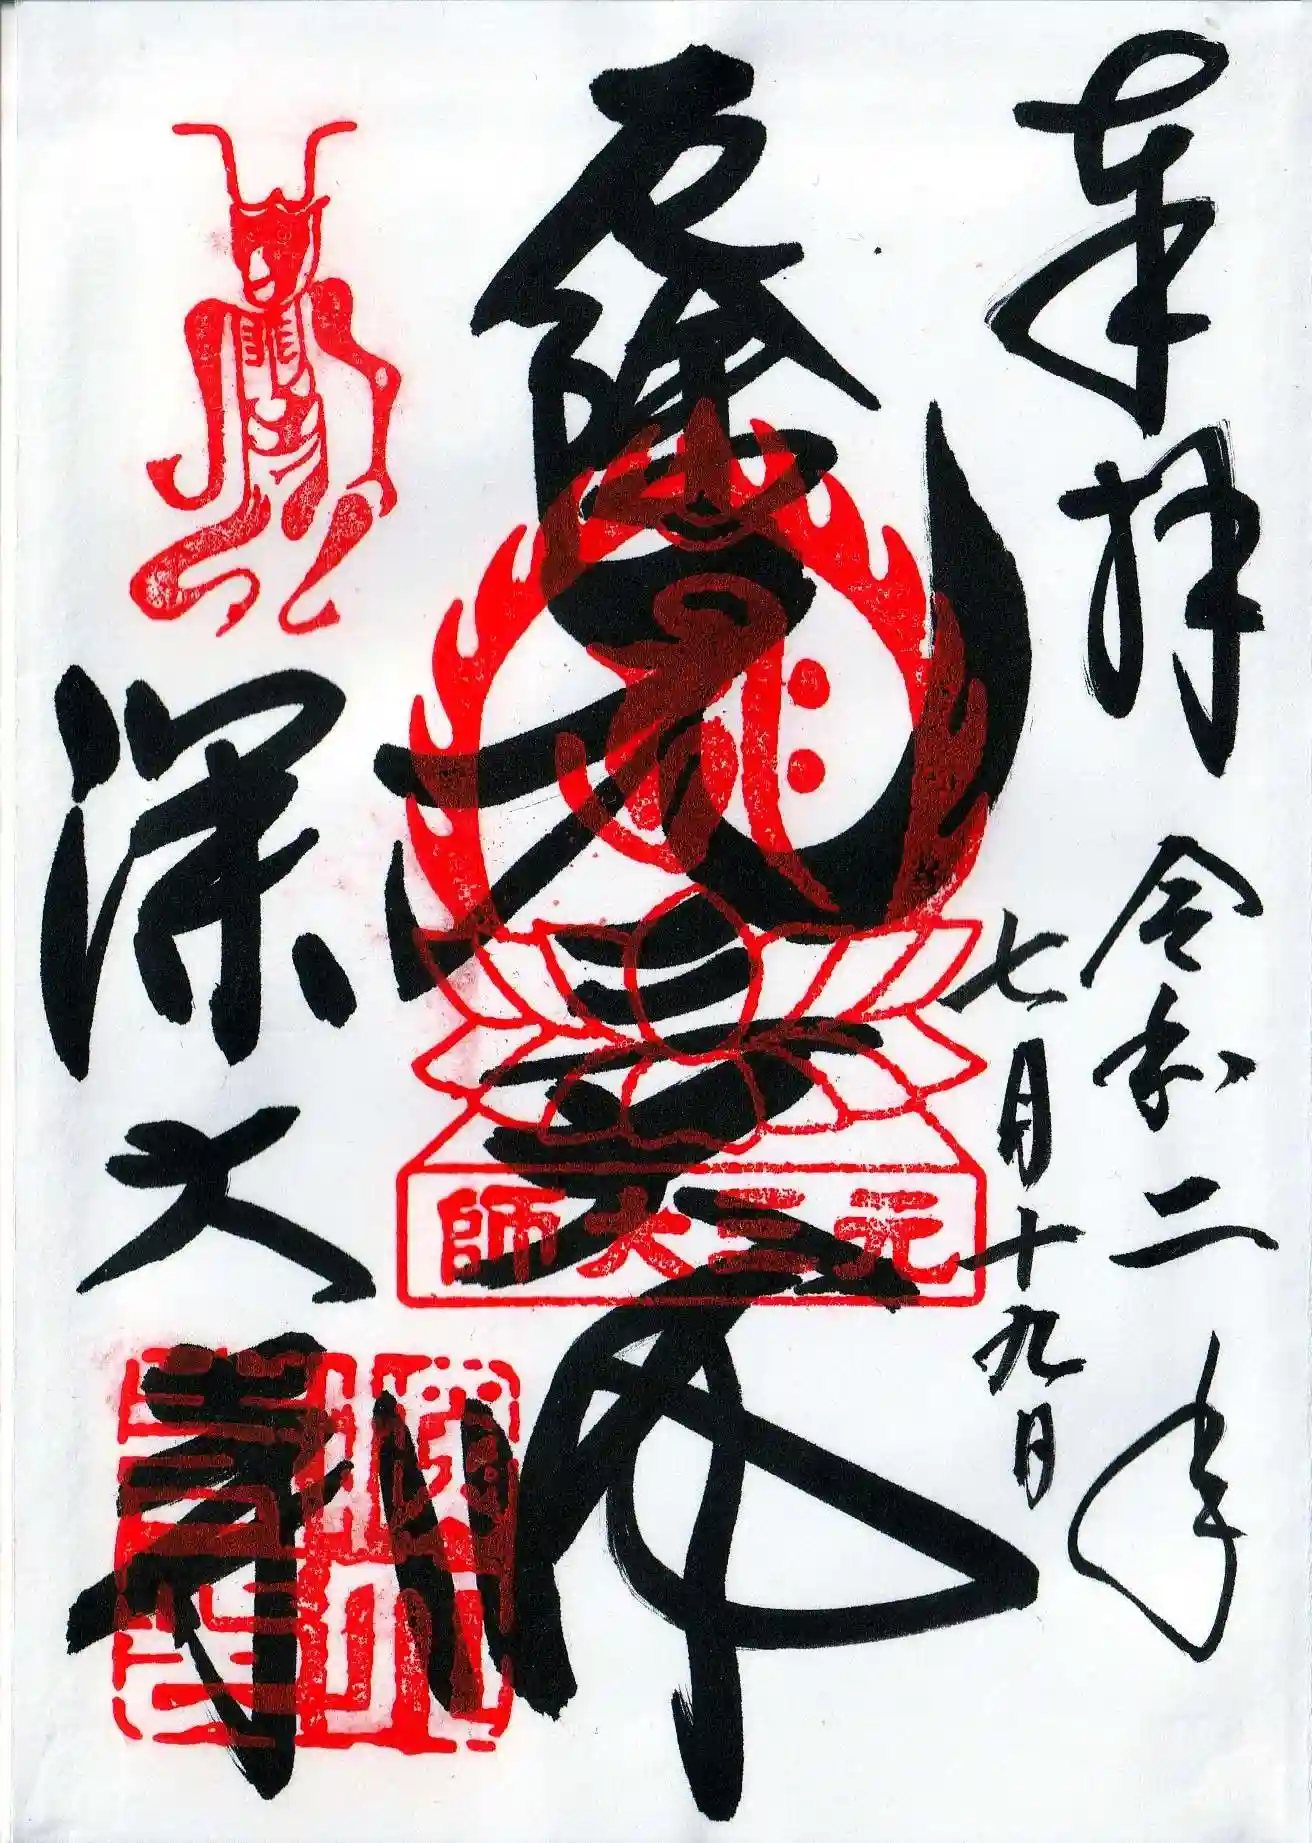 奉拝 令和二年
七月十九日
厄除元三大師
深大寺
元三大師